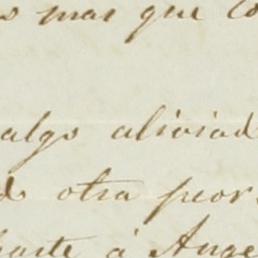 s mas que co
algo aliviad
d otra peor
parte á Ange